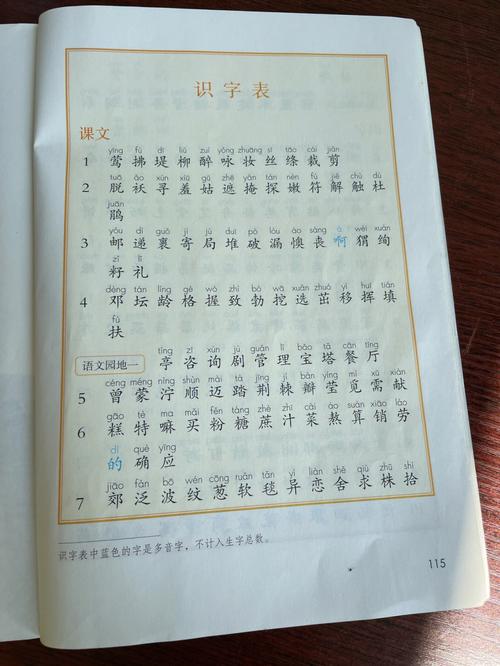 识字表
课文
yīng fú dī liǔ zuì yǒng zhuāng sī tāo cái jiǎn
1 莺 拂 堤 柳 醉 咏 妆 丝 绦 裁 剪
tuō ǎo xún xiū gū zhē yǎn tàn nèn fú jiě chù dù
2 脱 袄 寻 羞 姑 遮 掩 探 嫩 符 解 触 杜
juān
鹃
yóu dì guǒ jì jú duī pò lòu ào sàng à wèi xuàn
3 邮 递 裹 寄 局 堆 破 漏 懊 丧 啊 猬 绚
zǐ lǐ
籽 礼
dèng tán líng gé wò zhì bó wā xuǎn zhuó yí huī tián
4 邓 坛 龄 格 握 致 勃 挖 选 茁 移 挥 填
fú
扶
tíng zī xún jù guǎn lǐ bǎo tǎ cān tīng
语文园地一 亭 咨 询 剧 管 理 宝 塔 餐 厅
céng méng nìng shùn mài tà jīng jí bàn yíng mì xū xiàn
5 曾 蒙 泞 顺 迈 踏 荆 棘 瓣 莹 觅 需 献
gāo tè ma mǎi fěn táng zhè zhī cài rè suàn xiāo láo
6 糕 特 嘛 买 粉 糖 蔗 汁 菜 热 算 销 劳
dí què yīng
的 确 应
jiāo fàn bō wén cōng ruǎn tǎn yì liàn shě qiú zhū shí
7 郊 泛 波 纹 葱 软 毯 异 恋 舍 求 株 拾
识字表中蓝色的字是多音字，不计入生字总数。
115